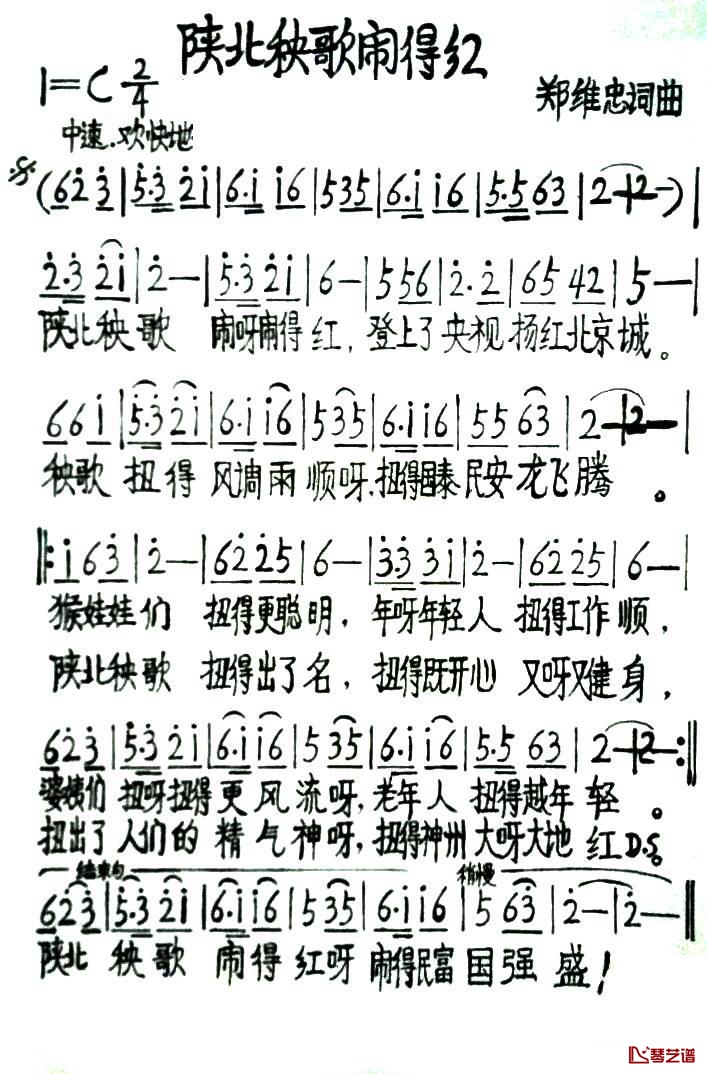 陕北秧歌闹得红
1=C 2/4
郑维忠词曲
中速、欢快地
(6 2̇ 3̇ | 5̇·3̇ 2̇ 1̇ | 6·1̇ 1̇ 6 | 5 3 5 | 6·1̇ 1̇ 6 | 5·5 6 3 | 2 — | 2 —) |
2̇·3̇ 2̇ 1̇ | 2̇ — | 5̇·3̇ 2̇ 1̇ | 6 — | 5 5 6 | 2̇·2̇ | 6 5 4 2 | 5 — |
陕北秧歌 闹呀闹得红，登上了央视扬红北京城。
6 6 1̇ | 5̇·3̇ 2̇ 1̇ | 6·1̇ 1̇ 6 | 5 3 5 | 6·1̇ 1̇ 6 | 5 5 6 3 | 2 — | 2 — |
秧歌 扭得 风调雨顺呀、扭得国泰民安龙飞腾。
‖: 1̇ 6 3̇ | 2̇ — | 6 2̇ 2̇ 5 | 6 — | 3̇·3̇ 3̇ 1̇ | 2̇ — | 6 2̇ 2̇ 5 | 6 — |
猴娃娃们 扭得更聪明，年呀年轻人 扭得工作顺，
陕北秧歌 扭得出了名，扭得既开心 又呀又健身，
6 2̇ 3̇ | 5̇·3̇ 2̇ 1̇ | 6·1̇ 1̇ 6 | 5 3 5 | 6·1̇ 1̇ 6 | 5·5 6 3 | 2 — | 2 — :‖
婆姨们 扭呀扭得更风流呀，老年人 扭得越年轻。
扭出了人们的精气神呀，扭得神州大呀大地红 D.S.
结束句 稍慢
6 2̇ 3̇ | 5̇·3̇ 2̇ 1̇ | 6·1̇ 1̇ 6 | 5 3 5 | 6·1̇ 1̇ 6 | 5 6 3̇ | 2̇ — | 2̇ — ‖
陕北 秧歌 闹得红呀 闹得民富国强盛！
琴艺谱